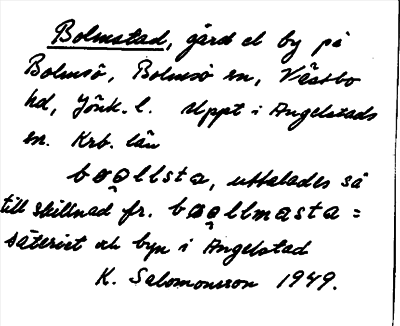 Bolmstad, gård el by på
Bolmsö, Bolmsö sn, Västbo
hd, Jönk. l. Uppt i Angelstads
sn. Krb. län
bøøllsta, uttalades så
till skillnad fr. bøøllmasta =
säteriet och byn i Angelstad
K. Salomonsson 1949.